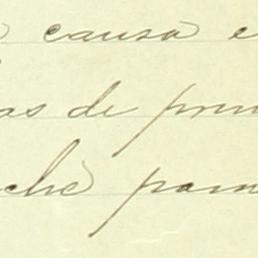 causa e
as de prin
chè pam